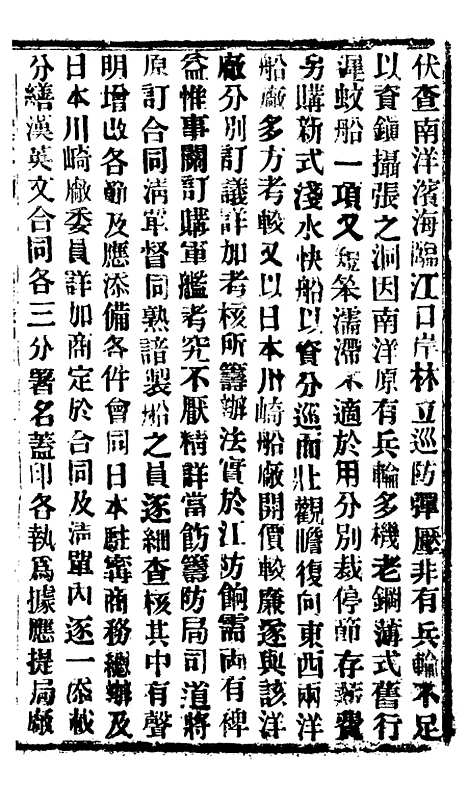 伏查南洋濱海臨江口岸林立巡防彈壓非有兵輪不足
以資鎭攝張之洞因南洋原有兵輪多機老鋼薄式舊行
遲蚊船一項又短笨濡滯不適於用分別裁停節存薪費
另購新式淺水快船以資分巡而壯觀瞻復向東西兩洋
船廠多方考較又以日本川崎船廠開價較廉遂與該洋
廠分別訂議詳加考核所籌辦法實於江防餉需兩有裨
益惟事關訂購軍艦考究不厭精詳當飭籌防局司道將
原訂合同清單督同熟諳製船之員逐細查核其中有聲
明增改各節及應添備各件會同日本駐寗商務總辦及
日本川崎廠委員詳加商定於合同及清單內逐一添載
分繕漢英文合同各三分署名蓋印各執爲據應提局廠